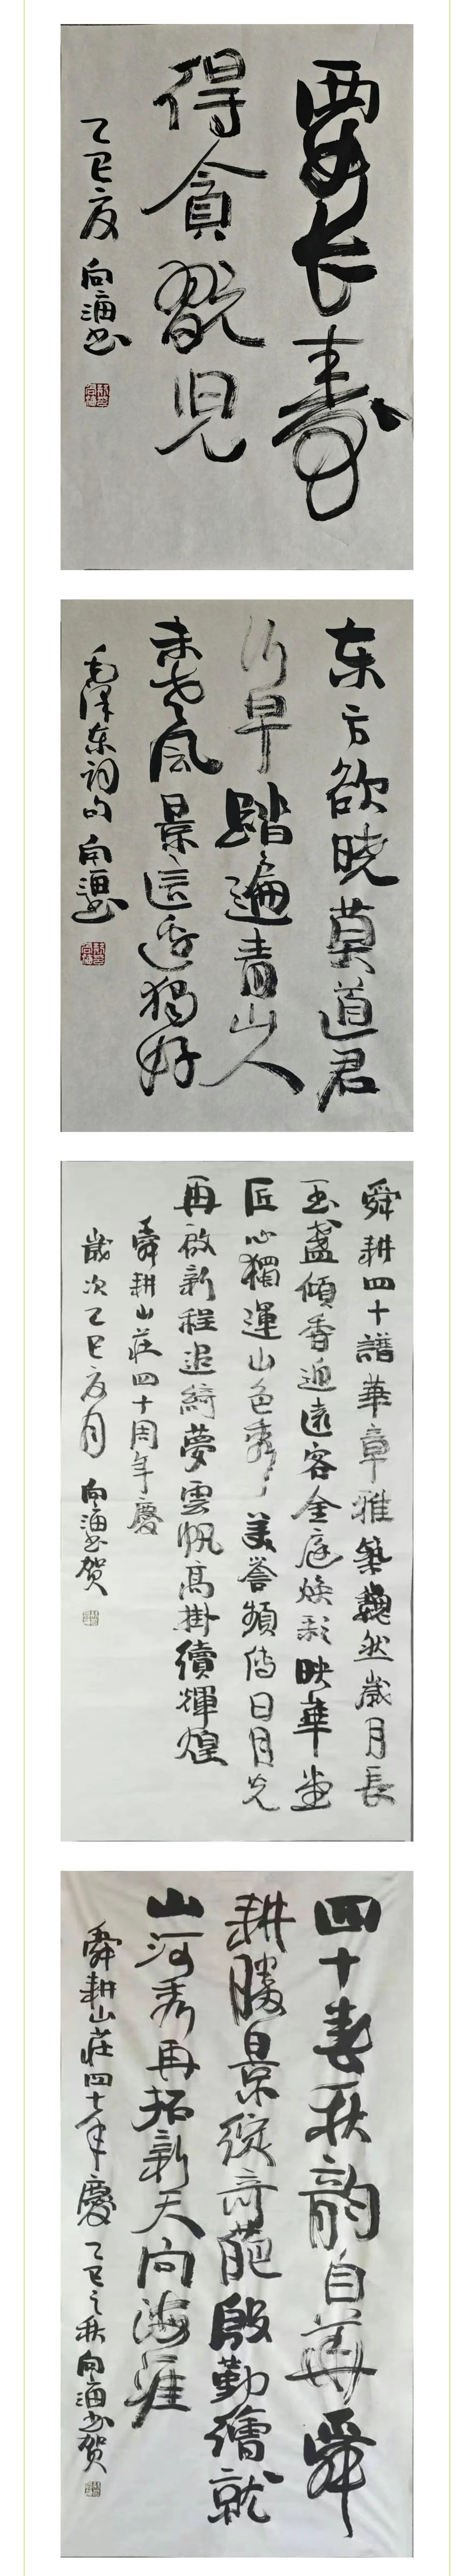 要长寿
得贪玩儿
乙巳夏 向海书
东方欲晓莫道君
行早踏遍青山人
未老风景这边独好
毛泽东词句 向海书
舜耕四十譜華章雅築巍然歲月長
玉盞傾香迎遠客金庭焕彩映華堂
匠心獨運山色秀美譽頻傳日月光
再啟新程追綺夢雲帆高掛續輝煌
舜耕山莊四十周年慶
歲次乙巳夏月 向海書贺
四十春秋韵自華舜
耕勝景綻奇葩殷勤繪就
山河秀再拓新天向海涯
舜耕山莊四十年慶 乙巳之秋向海書贺